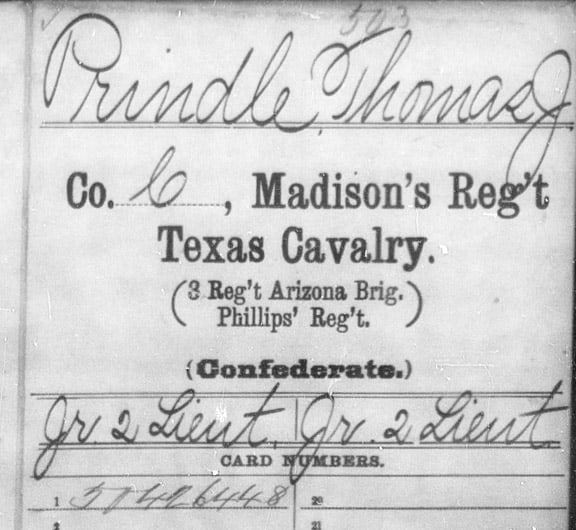 503
Prindle, Thomas J.
Co. C, Madison's Reg't
Texas Cavalry.
(3 Reg't Arizona Brig.
Phillips' Reg't.)
(Confederate.)
Jr. 2 Lieut. Jr. 2 Lieut
CARD NUMBERS.
1 50426448 20
2 21